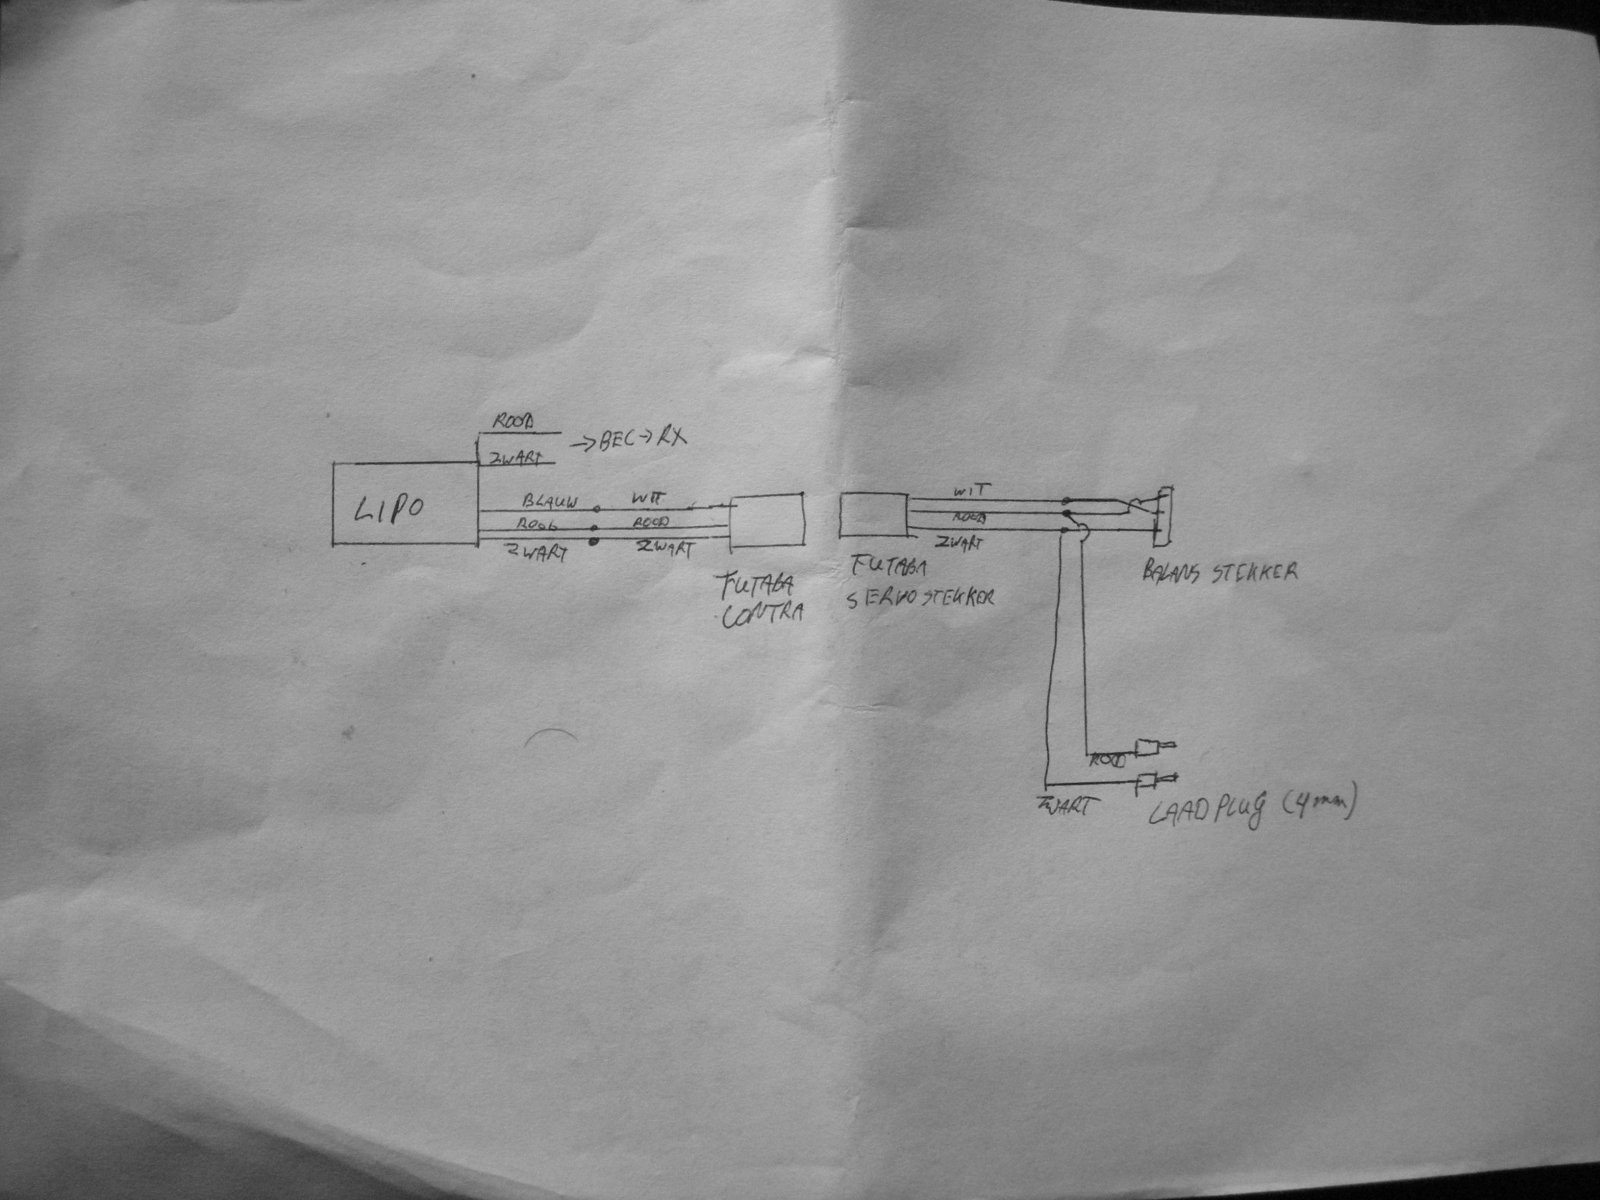 ROOD
→BEC→RX
ZWART
LIPO
BLAUW
WIT
ROOD
ROOD
ZWART
ZWART
FUTABA
CONTRA
WIT
ROOD
ZWART
FUTABA
SERVOSTEKKER
BALANS STEKKER
ROOD
ZWART
LAADPLUG (4mm)